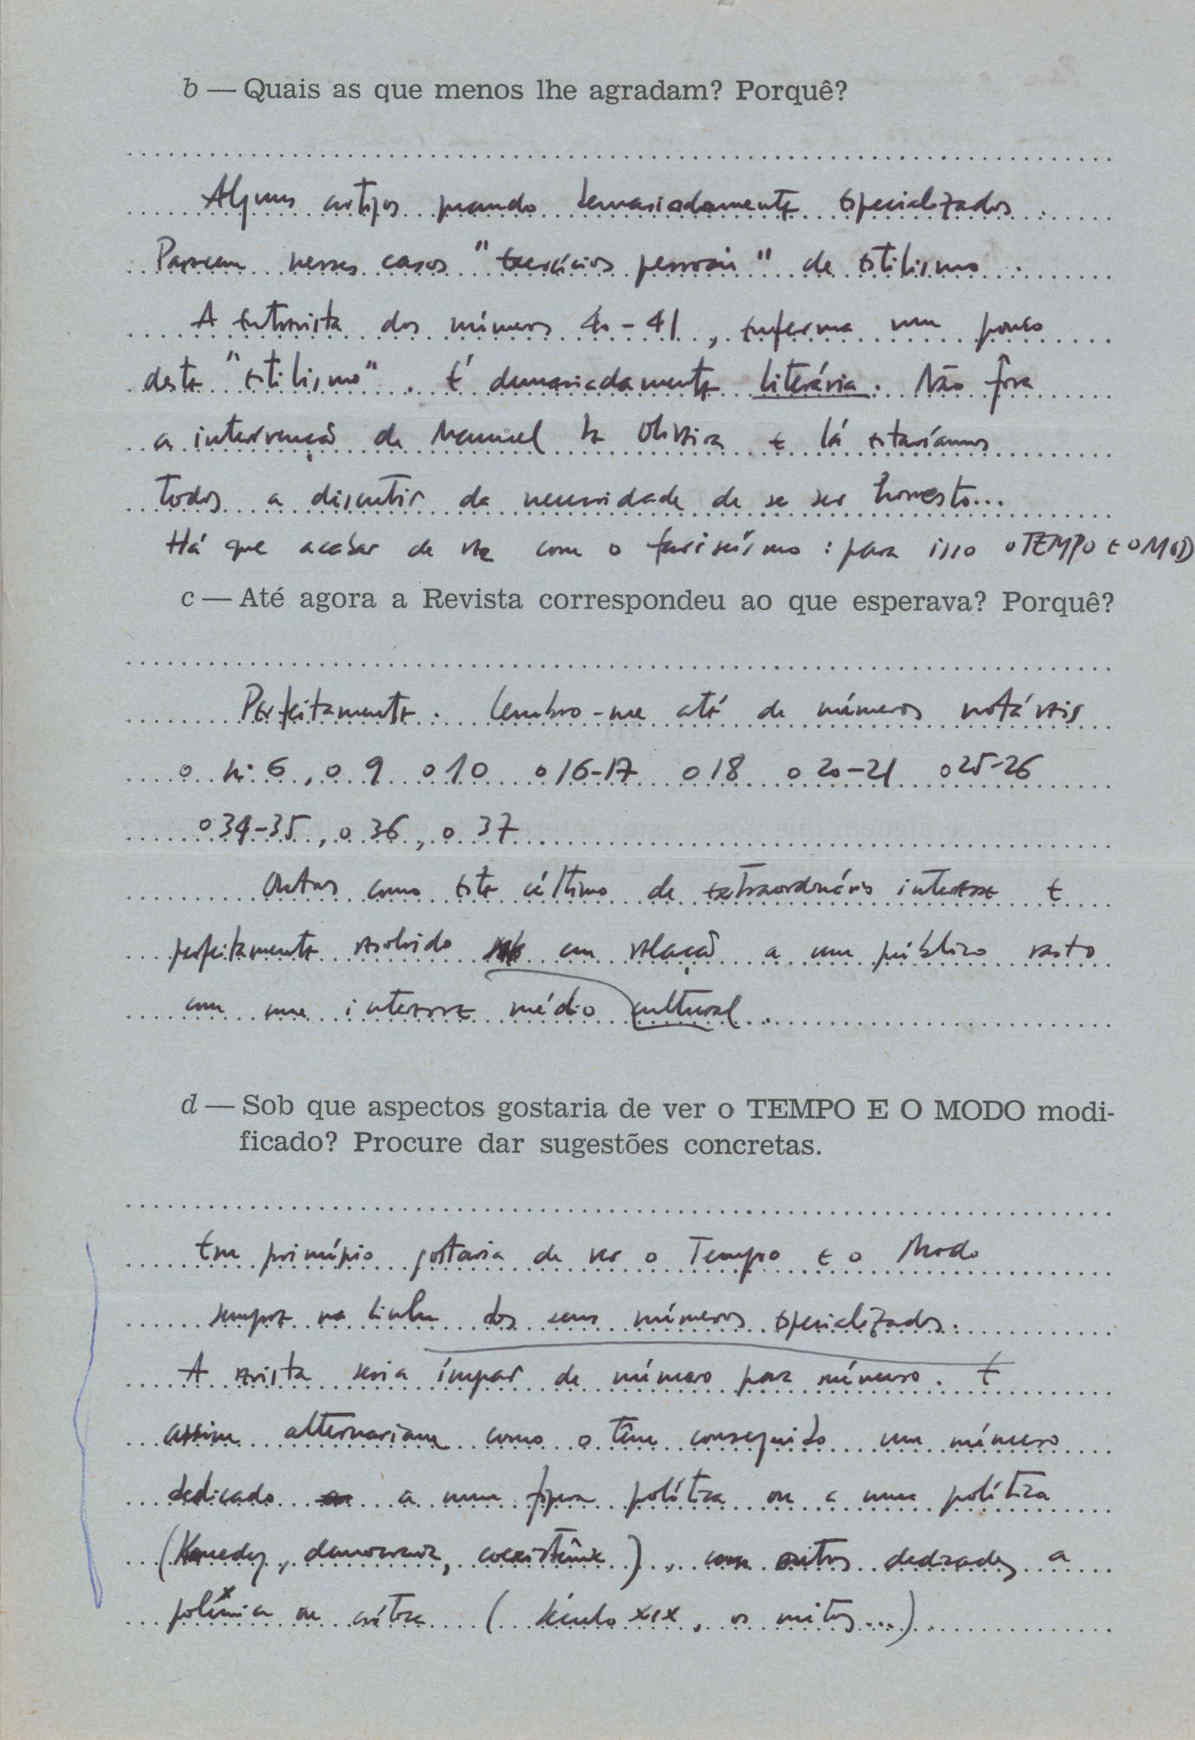 b — Quais as que menos lhe agradam? Porquê?
Alguns artigos quando demasiadamente especializados.
Parecem nesses casos "exercícios pessoais" de estilismo.
A entrevista dos números 40-41, enferma um pouco
deste "estilismo". É demasiadamente literária. Não fôra
a intervenção de Manuel de Oliveira e lá estaríamos
todos a discutir da necessidade de se ser honesto...
Há que acabar de vez com o fariseísmo: para isso o TEMPO E O MODO
c — Até agora a Revista correspondeu ao que esperava? Porquê?
Perfeitamente. Lembro-me até de números notáveis
o nº 6, o 9 o 10 o 16-17 o 18 o 20-21 o 25-26
o 34-35, o 36, o 37
Outros como este último de extraordinário interesse e
perfeitamente resolvido em relação a um público vasto
com um interesse médio cultural.
d — Sob que aspectos gostaria de ver o TEMPO E O MODO modi-
ficado? Procure dar sugestões concretas.
Em princípio gostaria de ver o Tempo e o Modo
sempre na linha dos seus números especializados.
A revista seria ímpar de número para número. E
assim alternariam como o têm conseguido um número
dedicado a uma figura política ou a uma política
(Kennedy, democracia, coexistência), com outros dedicados a
polémica ou crítica (Século XIX, os mitos...)